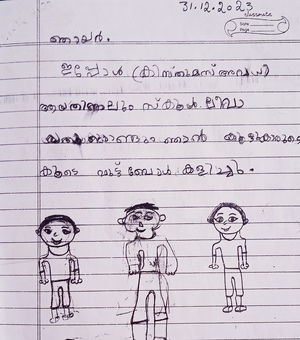 31.12.2023
classmate
Date
Page
ഞായർ.
ഇപ്പോൾ ക്രിസ്തുമസ് അവധി
ആയതിനാലും സ്കൂൾ ലീവാ
ഞാൻ കൂട്ടുകാരുടെ
കൂടെ ഫുട്ട് ബോൾ കളിച്ചു.